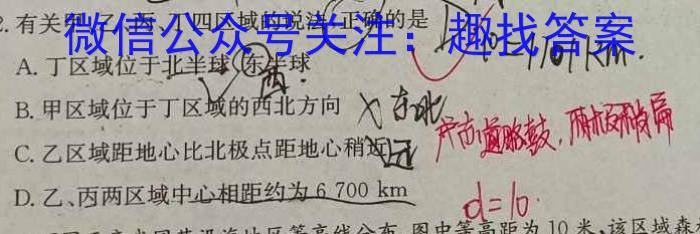 2. 有关甲、乙、丙、丁四区域的说法正确的是
微信公众号关注：趣找答案
A. 丁区域位于北半球、东半球
西
B. 甲区域位于丁区域的西北方向 × 东北
C. 乙区域距地心比北极点距地心稍近 远
赤道略鼓，两极稍扁
D. 乙、丙两区域中心相距约为 6 700 km
d=10
等高线分布,图中等高距为 10 米,该区域森